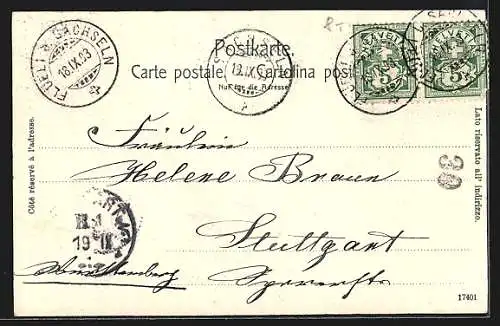 FLÜELI & SACHSELN
18.IX.03
Postkarte.
Carte postale. Cartolina post
Nur für die Adresse
SACHSELN
19.IX.
HELVETIA
5
HELVETIA
5
Côté réservé à l'adresse.
Lato riservato all' indirizzo.
Fräulein
Helene Braun
Stuttgart
Württemberg
30
19 IX
17401